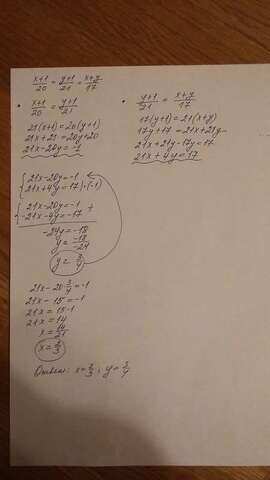 x+1/20 = y+1/21 = x+y/17
x+1/20 = y+1/21
21(x+1)=20(y+1)
21x+21=20y+20
21x-20y=-1
• y+1/21 = x+y/17
17(y+1)=21(x+y)
17y+17=21x+21y
21x+21y-17y=17
21x+4y=17
{21x-20y=-1
21x+4y=17 |·(-1)
{21x-20y=-1
-21x-4y=-17 +
-24y=-18
y= -18/-24
y= 3/4
21x-20·3/4=-1
21x-15=-1
21x=15-1
21x=14
x=14/21
x=2/3
Ответ: x=2/3; y=3/4